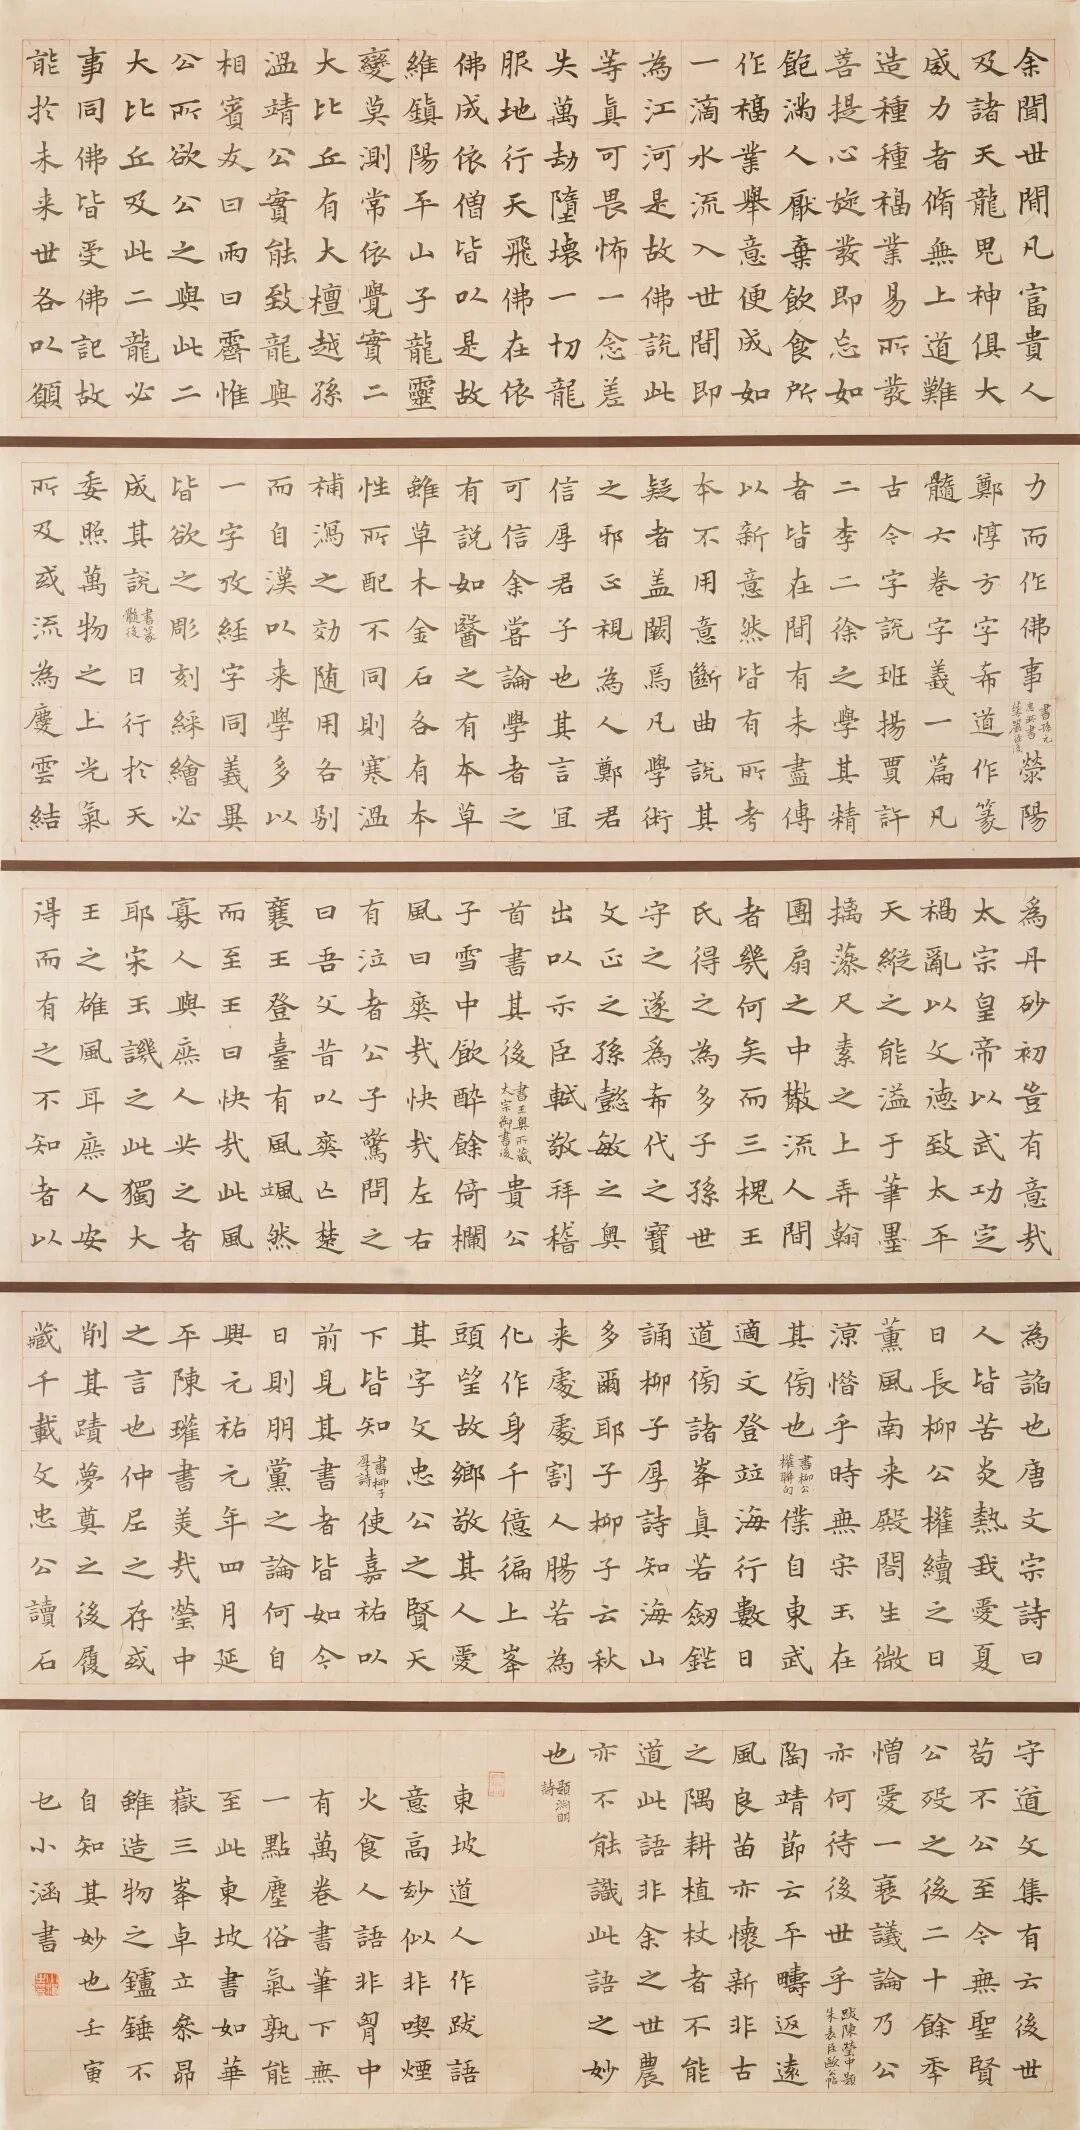 余聞世間凡富貴人
及諸天龍鬼神俱大
威力者脩無上道難
造種種福業易所發
菩提心旋發即忘如
飽滿人厭棄飲食所
作福業舉意便成如
一滴水流入世間即
為江河是故佛說此
等真可畏怖一念差
失萬劫墮壞一切龍
服地行天飛佛在依
佛成依僧皆以是故
維鎮陽平山子龍靈
變莫測常依覺實二
大比丘有大檀越孫
溫靖公實能致龍與
相賓友曰雨曰霽惟
公所欲公之與此二
大比丘及此二龍必
事同佛皆受佛記故
能於未来世各以願
力而作佛事書孫元忠所書華嚴經後滎陽
鄭惇方字希道作篆
髓六卷字義一篇凡
古今字說班揚賈許
二李二徐之學其精
者皆在間有未盡傅
以新意然皆有所考
本不用意斷曲說其
疑者蓋闕焉凡學術
之邪正視為人鄭君
信厚君子也其言宜
可信余嘗論學者之
有說如醫之有本草
雖草木金石各有本
性所配不同則寒溫
補瀉之効随用各別
而自漢以来學多以
一字攷經字同義異
皆欲之彫刻綵繪必
成其說書篆髓後日行於天
委照萬物之上光氣
所及或流為慶雲結
為丹砂初豈有意哉
太宗皇帝以武功定
禍亂以文德致太平
天縱之能溢于筆墨
摛藻尺素之上弄翰
團扇之中散流人間
者幾何矣而三槐王
氏得之為多子孫世
守之遂為希代之寶
文正之孫懿敏之奧
出以示臣軾敬拜稽
首書其後書王奧所藏太宗御書後貴公
子雪中飲醉餘倚欄
風曰爽哉快哉左右
有泣者公子驚問之
曰吾父昔以爽亡楚
襄王登臺有風颯然
而至王曰快哉此風
寡人與庶人共之者
耶宋玉譏之此獨大
王之雄風耳庶人安
得而有之不知者以
為諂也唐文宗詩曰
人皆苦炎熱我愛夏
日長柳公權續之曰
薰風南来殿閣生微
涼惜乎時無宋玉在
其傍也書柳公權聯句僕自東武
適文登竝海行數日
道傍諸峯真若劒鋩
誦柳子厚詩知海山
多爾耶子柳子云秋
来處處割人腸若為
化作身千億徧上峯
頭望故鄉敬其人愛
其字文忠公之賢天
下皆知書柳子厚詩使嘉祐以
前見其書者皆如今
日則朋黨之論何自
興元祐元年四月延
平陳瓘書美哉瑩中
之言也仲尼之存或
削其蹟夢奠之後履
藏千載文忠公讀石
守道文集有云後世
苟不公至今無聖賢
公歿之後二十餘年
憎愛一衰議論乃公
亦何待後世乎跋陳瑩中題朱表臣歐公帖
陶靖節云平疇返遠
風良苗亦懷新非古
之隅耕植杖者不能
道此語非余之世農
亦不能識此語之妙
也題淵明詩
東坡道人作跋語
意高妙似非喫煙
火食人語非胷中
有萬卷書筆下無
一點塵俗氣孰能
至此東坡書如華
嶽三峯卓立參昴
雖造物之鑪錘不
自知其妙也壬寅
乜小涵書